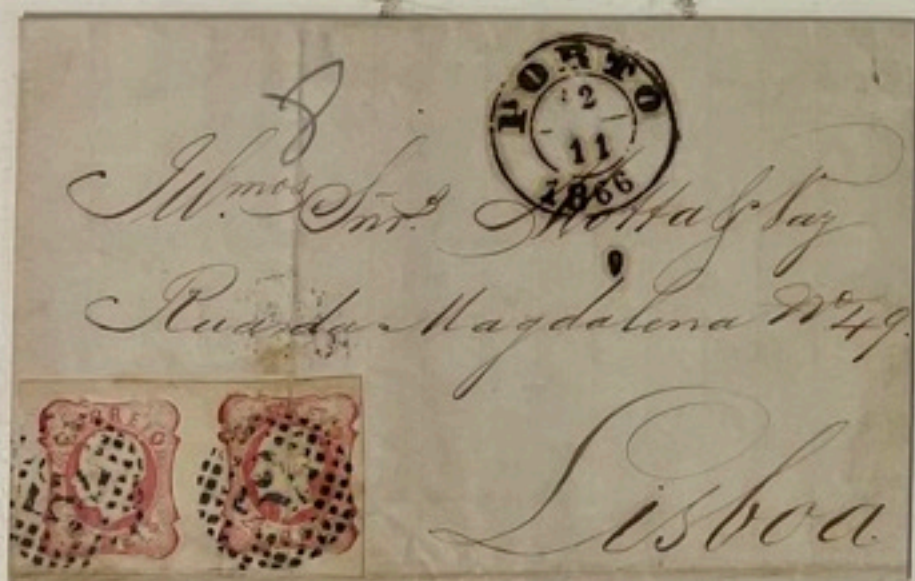 PORTO
12
11
1866
8
Illmos Snrs. Motta & Vaz
Rua da Magdalena Nº 49.
Lisboa
CORREIO